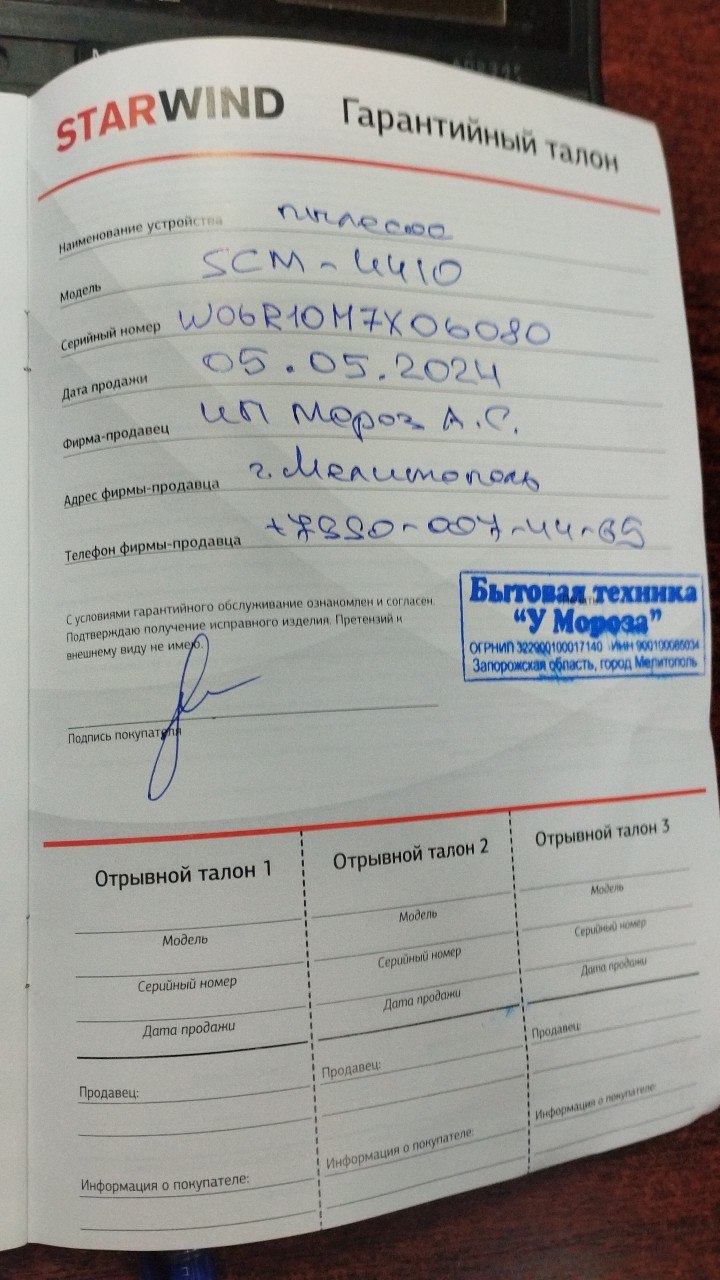 STARWIND Гарантийный талон
Наименование устройства пылесос
Модель SCM-4410
Серийный номер W06R10M7X06080
Дата продажи 05.05.2024
Фирма-продавец ИП Мороз А.С.
Адрес фирмы-продавца г. Мелитополь
Телефон фирмы-продавца +7990-007-44-65
С условиями гарантийного обслуживание ознакомлен и согласен.
Подтверждаю получение исправного изделия. Претензий к
внешнему виду не имею.
Бытовая техника
“У Мороза”
ОГРНИП 322900100017140 ИНН 900100086034
Запорожская область, город Мелитополь
Подпись покупателя
Отрывной талон 1
Модель
Серийный номер
Дата продажи
Продавец:
Информация о покупателе:
Отрывной талон 2
Модель
Серийный номер
Дата продажи
Продавец:
Информация о покупателе:
Отрывной талон 3
Модель
Серийный номер
Дата продажи
Продавец:
Информация о покупателе: